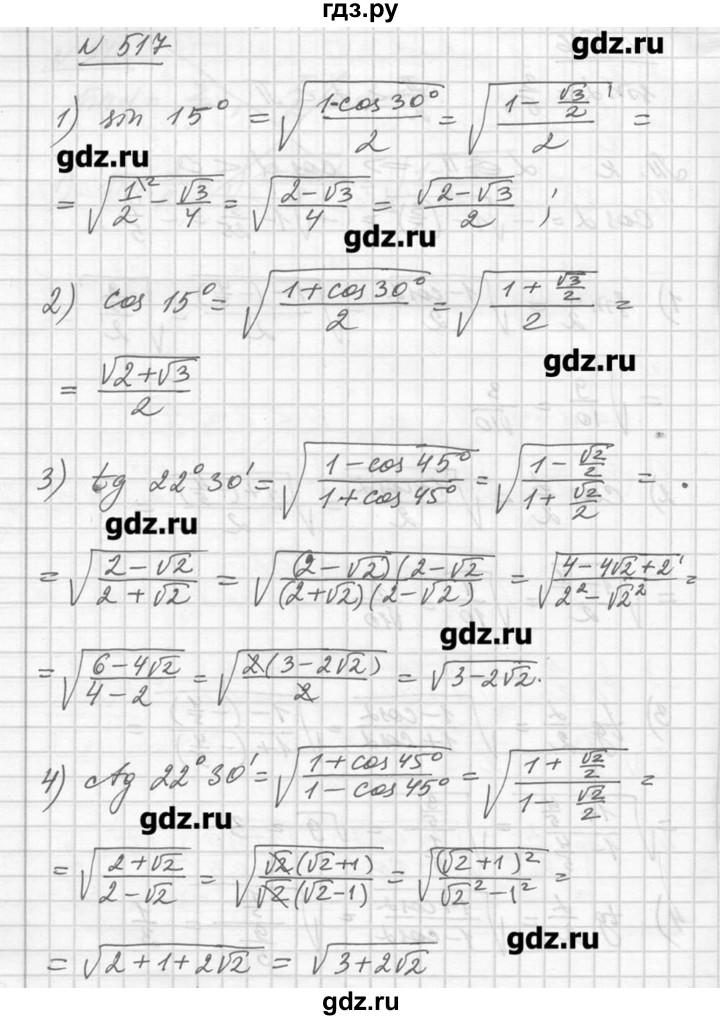 гдз.ру
N 517
gdz.ru
1) sin 15° = √((1-cos 30°)/2) = √((1 - √3/2)/2) =
gdz.ru
= √(1\²/2 - √3/4) = √((2-√3)/4) = √(2-√3)/2 ;
gdz.ru
2) cos 15° = √((1+cos 30°)/2) = √((1 + √3/2)/2) =
gdz.ru
= √(2+√3)/2
3) tg 22°30' = √((1-cos 45°)/(1+cos 45°)) = √((1 - √2/2)/(1 + √2/2)) =
gdz.ru
= √((2-√2)/(2+√2)) = √((2-√2)(2-√2/(2+√2)(2-√2)) = √((4-4√2+2)/(2²-√2²)) =
gdz.ru
= √((6-4√2)/(4-2)) = √(2(3-2√2)/2) = √(3-2√2).
4) ctg 22°30' = √((1+cos 45°)/(1-cos 45°)) = √((1 + √2/2)/(1 - √2/2)) =
gdz.ru
= √((2+√2)/(2-√2)) = √(√2(√2+1)/√2(√2-1)) = √((√2+1)²/(√2²-1²)) =
gdz.ru
= √(2+1+2√2) = √(3+2√2)
gdz.ru